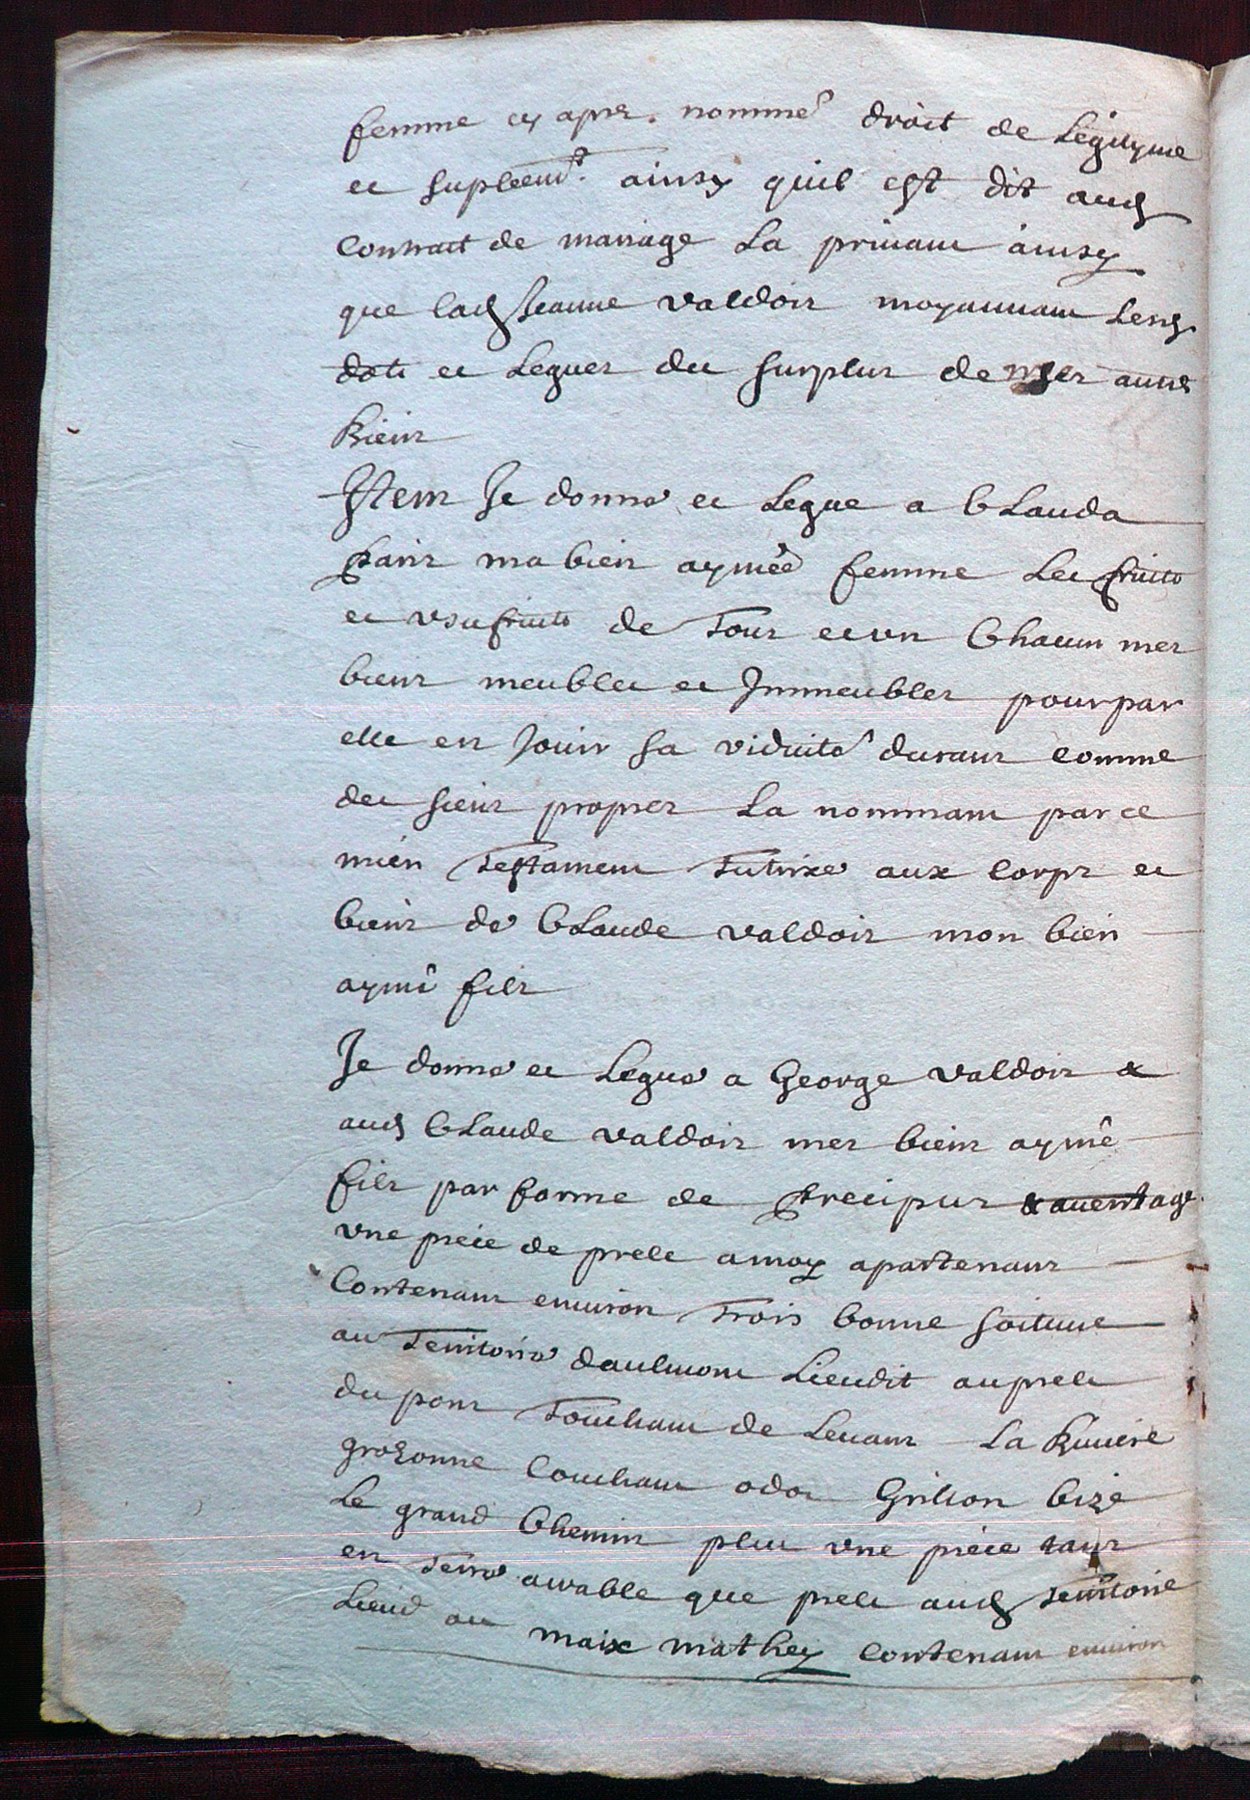 femme cy apres nommé droit de Legityme
et suplemt. ainsy quil est dit aud
Contract de mariage La privant ainsy
que lad Jeanne valdois moyennant Lesd
dots et Leguer du surplus de mes autres
biens
Item Je donne et Legue a Clauda
paris ma bien aymée femme Les fruits
et vsufruits de Tous et vn Chacun mes
biens meubles et Immeubles pour par
elle en Jouir sa viduité durant comme
des siens propres La nommant par ce
mien Testament Tutrixe aux Corps et
biens de Claude valdois mon bien
aymé fils
Je donne et Legue a George valdois &
aud Claude valdois mes biens aymé
fils par forme de precipus & aventage
vne piece de prele a moy apartenant
Contenant environ Trois bonne soiture
au Territoire daulmont Lieudit au prele
du pont Touchant de Levant La Riviere
grozonne Couchant odo Grillon bize
Le grand Chemin plus vne piece tant
en Terre arable que prele aud Territoire
Lieud au maix mathey Contenant environ